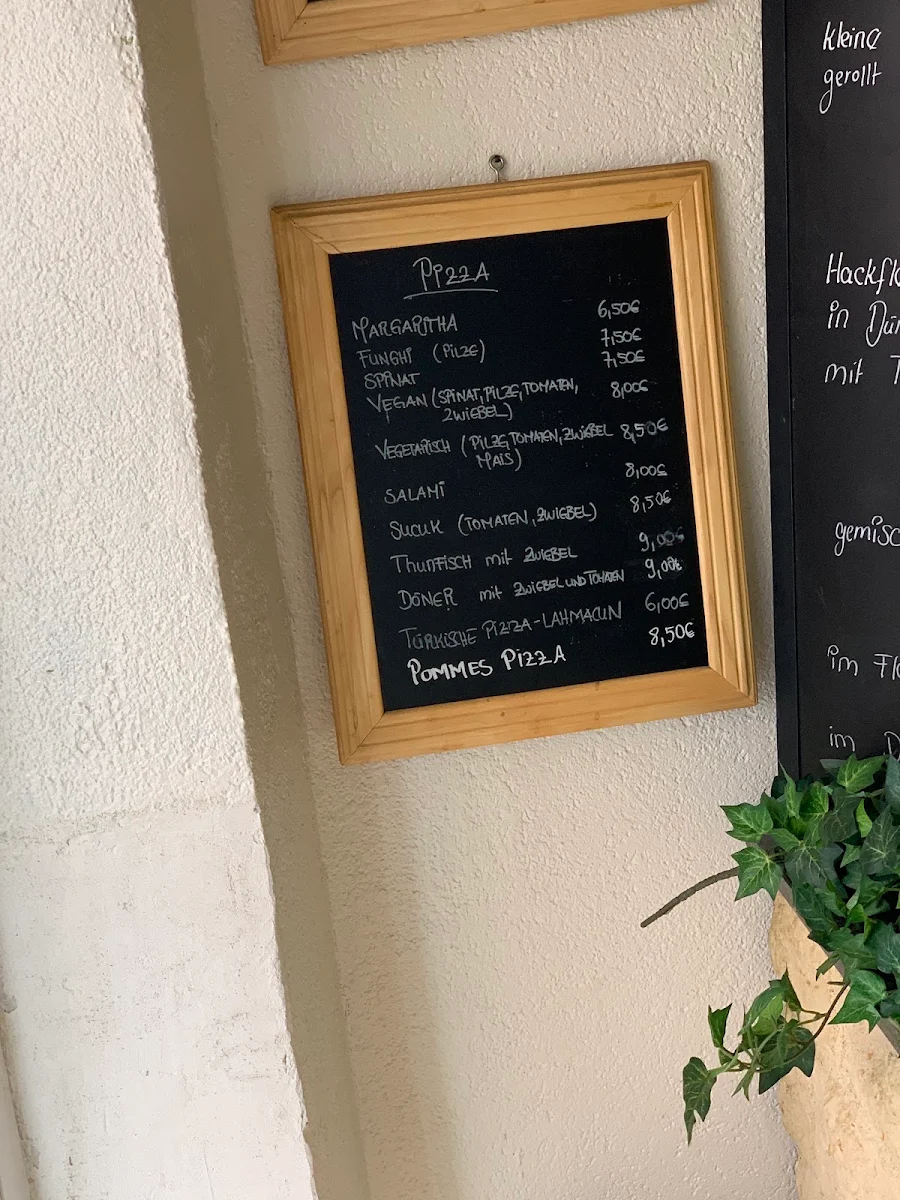 PIZZA
MARGARITHA 6,50€
FUNGHI (PILZE) 7,50€
SPINAT 7,50€
VEGAN (SPINAT, PILZE, TOMATEN, 8,00€
ZWIEBEL)
VEGETARISCH (PILZE, TOMATEN, ZWIEBEL 8,50€
MAIS)
SALAMI 8,00€
SUCUK (TOMATEN, ZWIEBEL) 8,50€
THUNFISCH mit ZWIEBEL 9,00€
DÖNER mit ZWIEBEL UND TOMATEN 9,00€
TÜRKISCHE PIZZA-LAHMACUN 6,00€
POMMES PIZZA 8,50€
kleine
gerollt
Hackfl
in Dür
mit T
gemisc
im Fl
im D